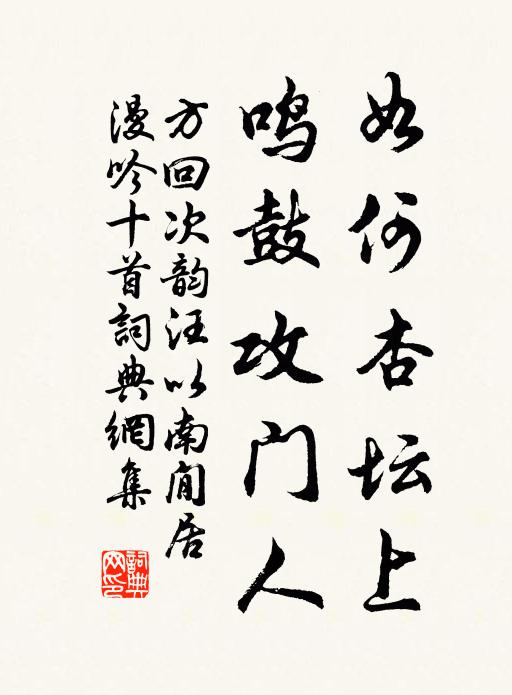 如何杏坛上
鸣鼓攻门人
方回次韵汪以南闲居
漫吟十首詞典網集
詞典网印